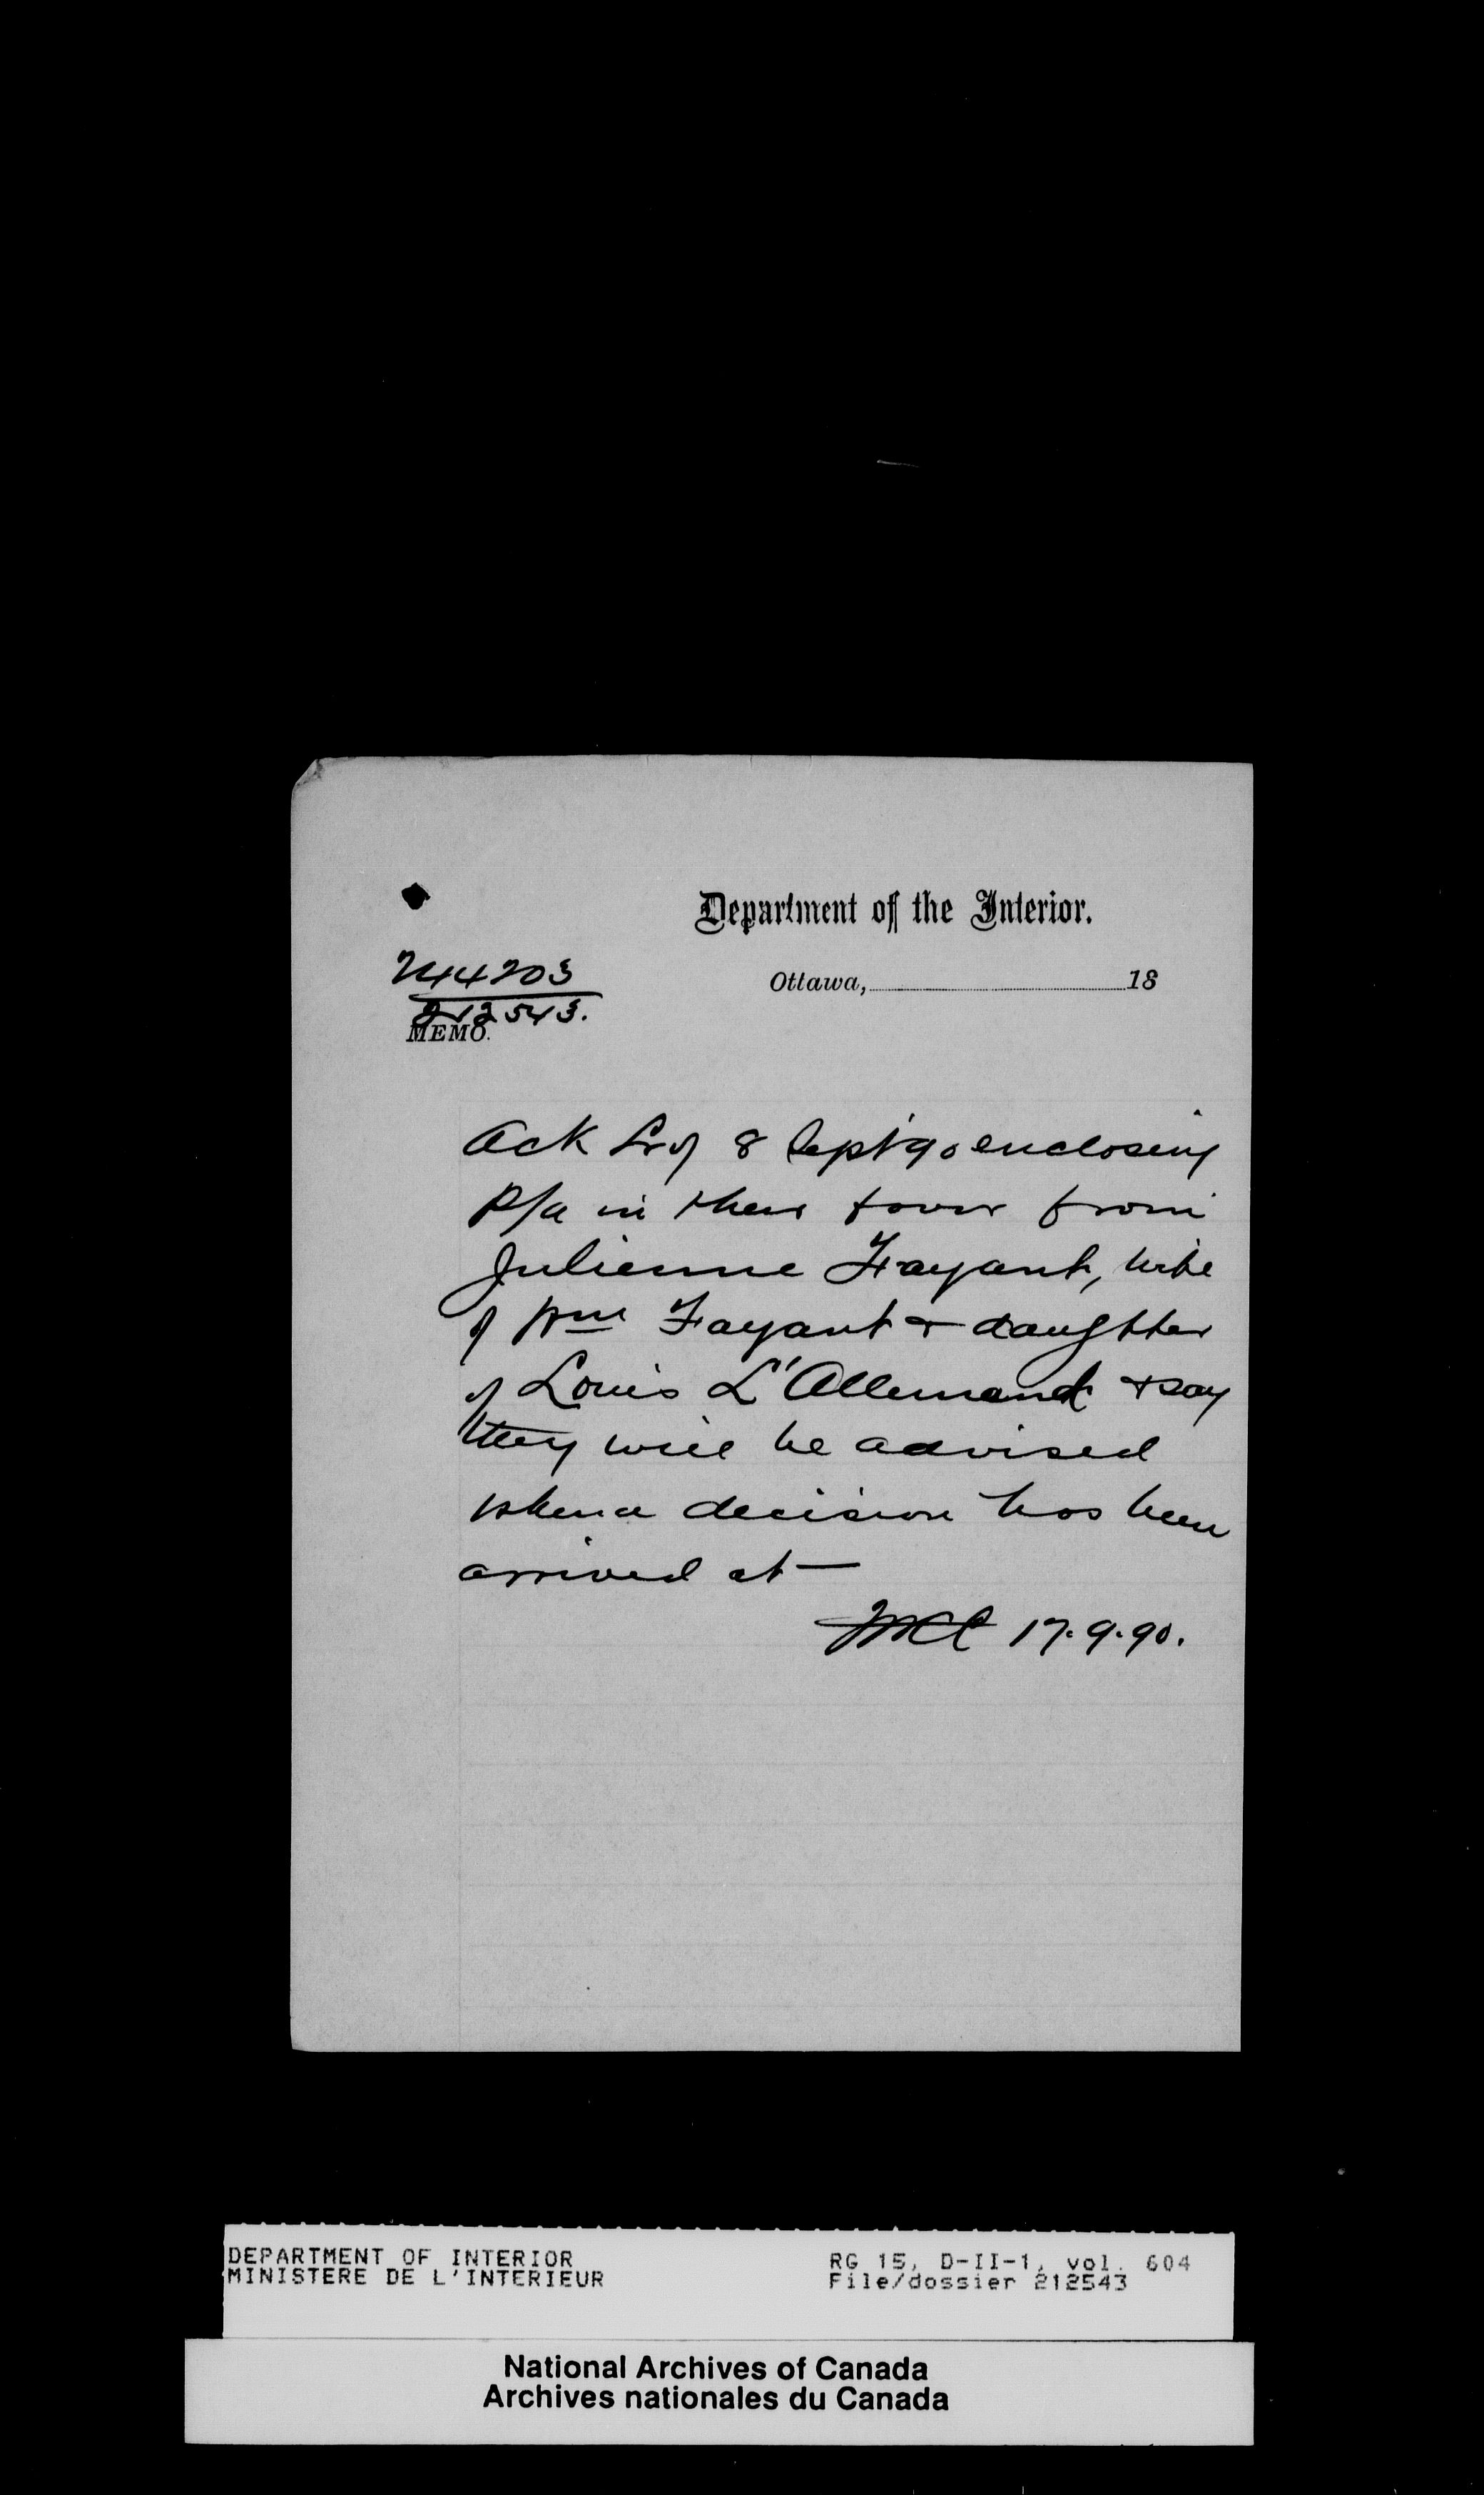 Department of the Interior.
244203
212543.
Ottawa, 18
MEMO.
Ack Lr of 8 Sept '90 enclosing
P/a in their favor from
Julienne Fayant, wife
of Wm Fayant & daughter
of Louis L'Allemand & say
they will be advised
when a decision has been
arrived at —
17.9.90.
DEPARTMENT OF INTERIOR
MINISTERE DE L'INTERIEUR
RG 15, D-II-1, vol. 604
File/dossier 212543
National Archives of Canada
Archives nationales du Canada